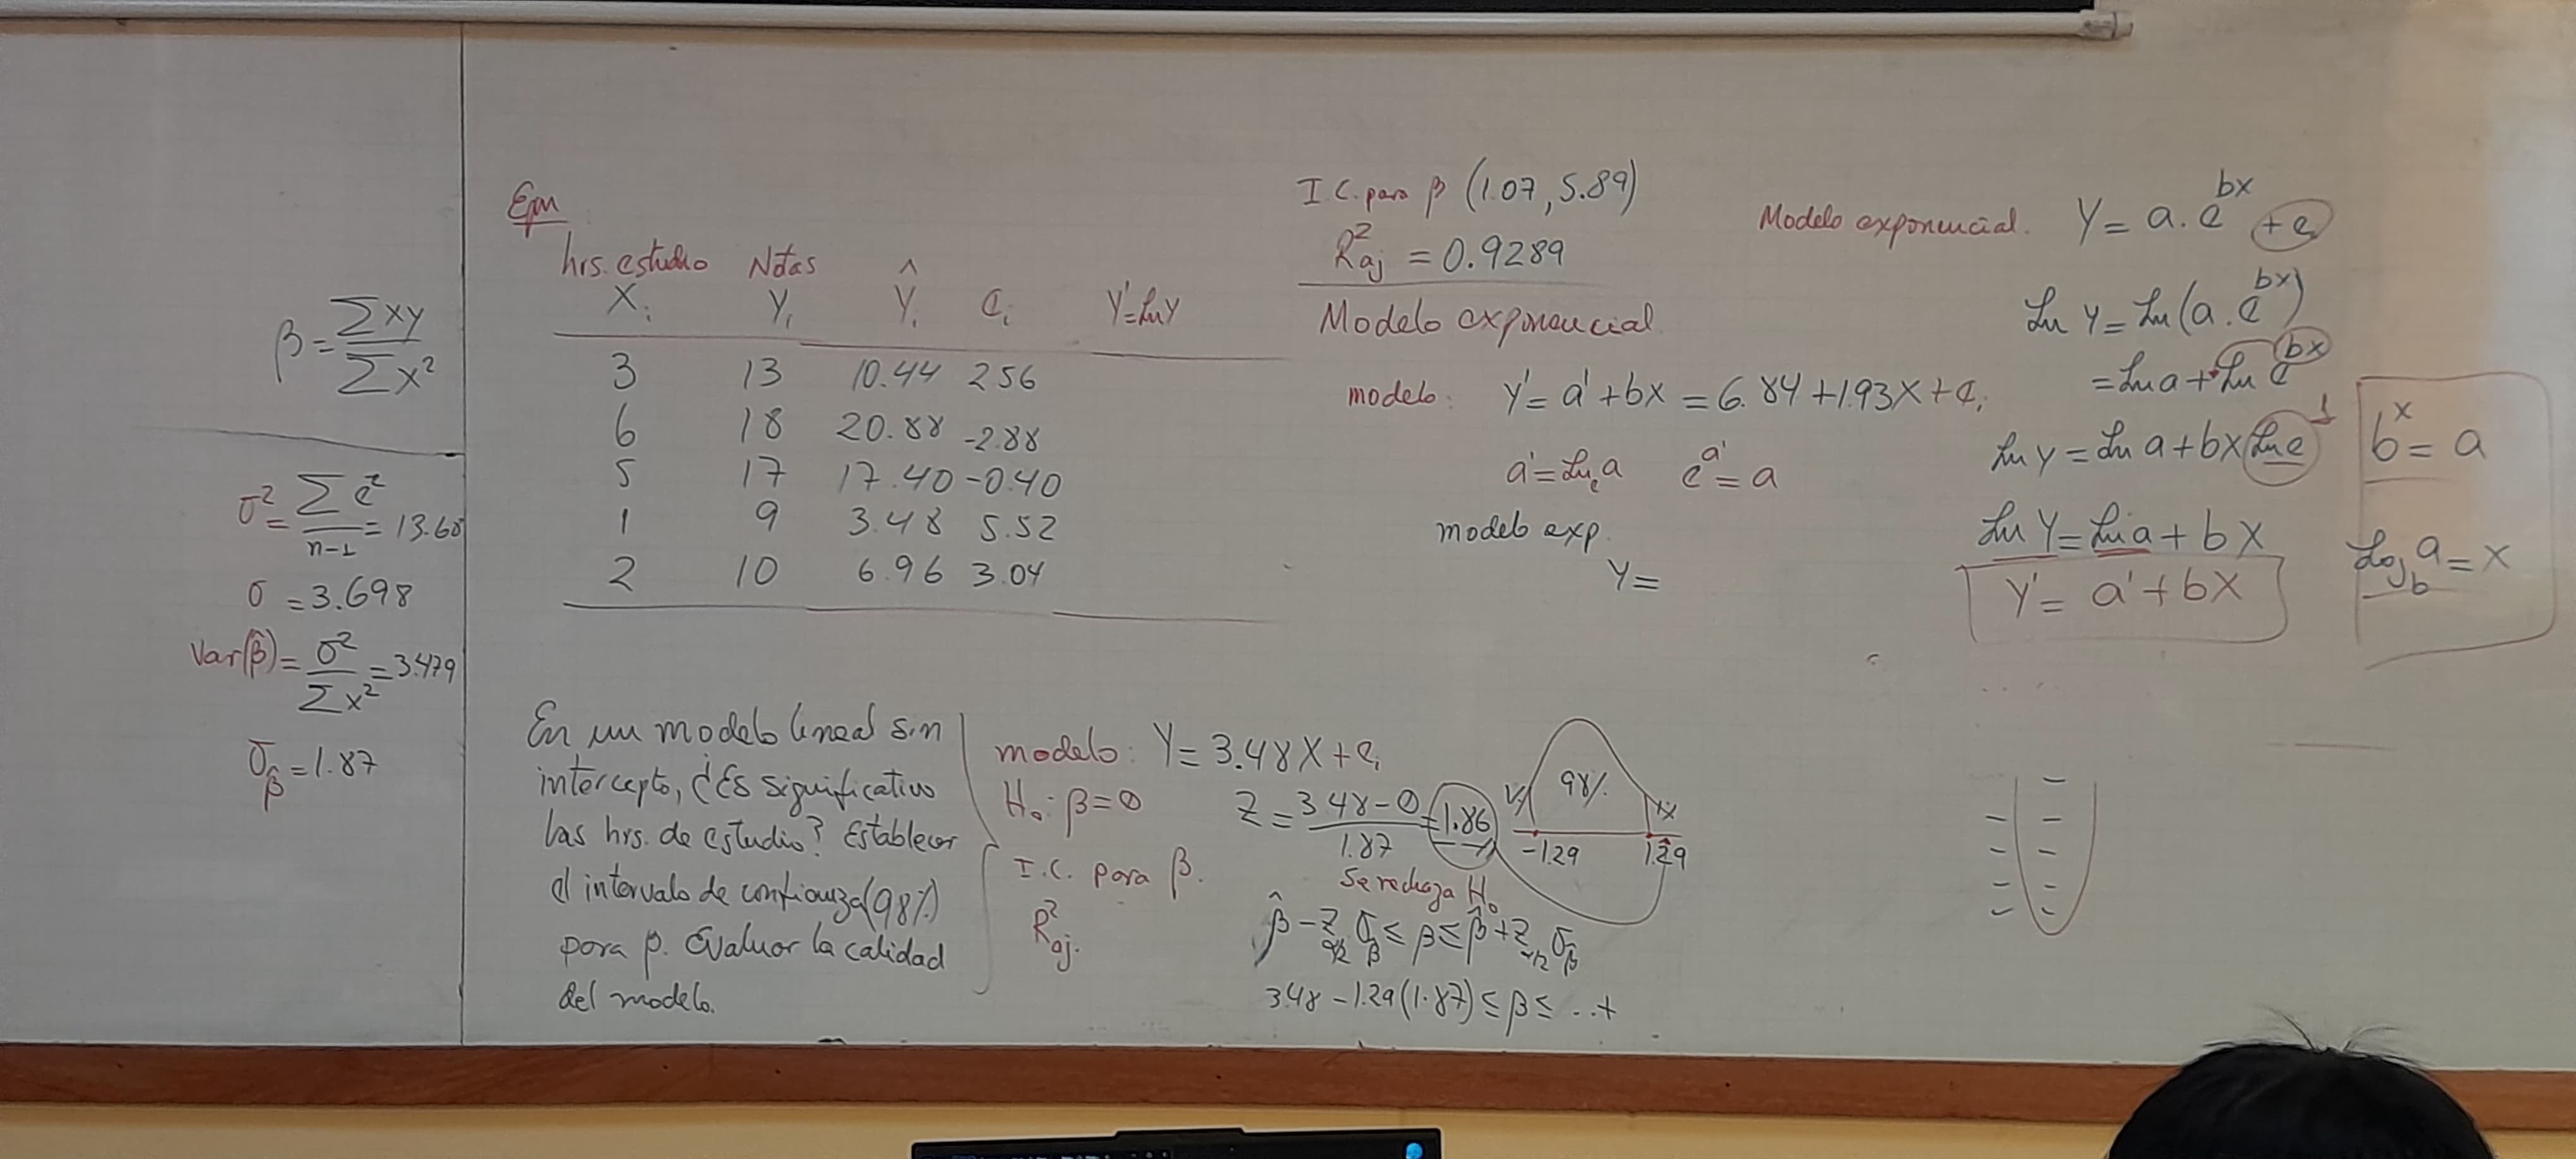 β = Σxy / Σx²
σ² = Σe² / n-1 = 13.68
σ = 3.698
Var(β̂) = σ² / Σx² = 3.479
σβ̂ = 1.87
Ejm
hrs. estudio Notas
Xi Yi Ŷi ei Y'=LnY
3 13 10.44 2.56
6 18 20.88 -2.88
5 17 17.40 -0.40
1 9 3.48 5.52
2 10 6.96 3.04
En un modelo lineal sin
intercepto, ¿Es significativo
las hrs. de estudio? Establecer
el intervalo de confianza (98%)
para β. Evaluar la calidad
del modelo.
modelo: Y = 3.48X + ei
H₀: β = 0
I.C. para β.
R²aj.
Z = 3.48 - 0 / 1.87 = 1.86
98%
-1.29 1.29
Se rechaza H₀
β̂ - Zα/2 σβ̂ ≤ β ≤ β̂ + Zα/2 σβ̂
3.48 - 1.29(1.87) ≤ β ≤ ...+
I.C. para β (1.07, 5.89)
R²aj = 0.9289
Modelo exponencial
modelo: Y' = a' + bx = 6.84 + 1.93X + ei
a' = Lnₑa e^a' = a
modelo exp.
Y =
Modelo exponencial. Y = a.e^bx + e
Ln Y = Ln(a.e^bx)
= Ln a + Ln e^bx
Ln y = Ln a + bx Ln e 1
Ln Y = Ln a + bX
Y' = a' + bX
b^x = a
Log_b a = x